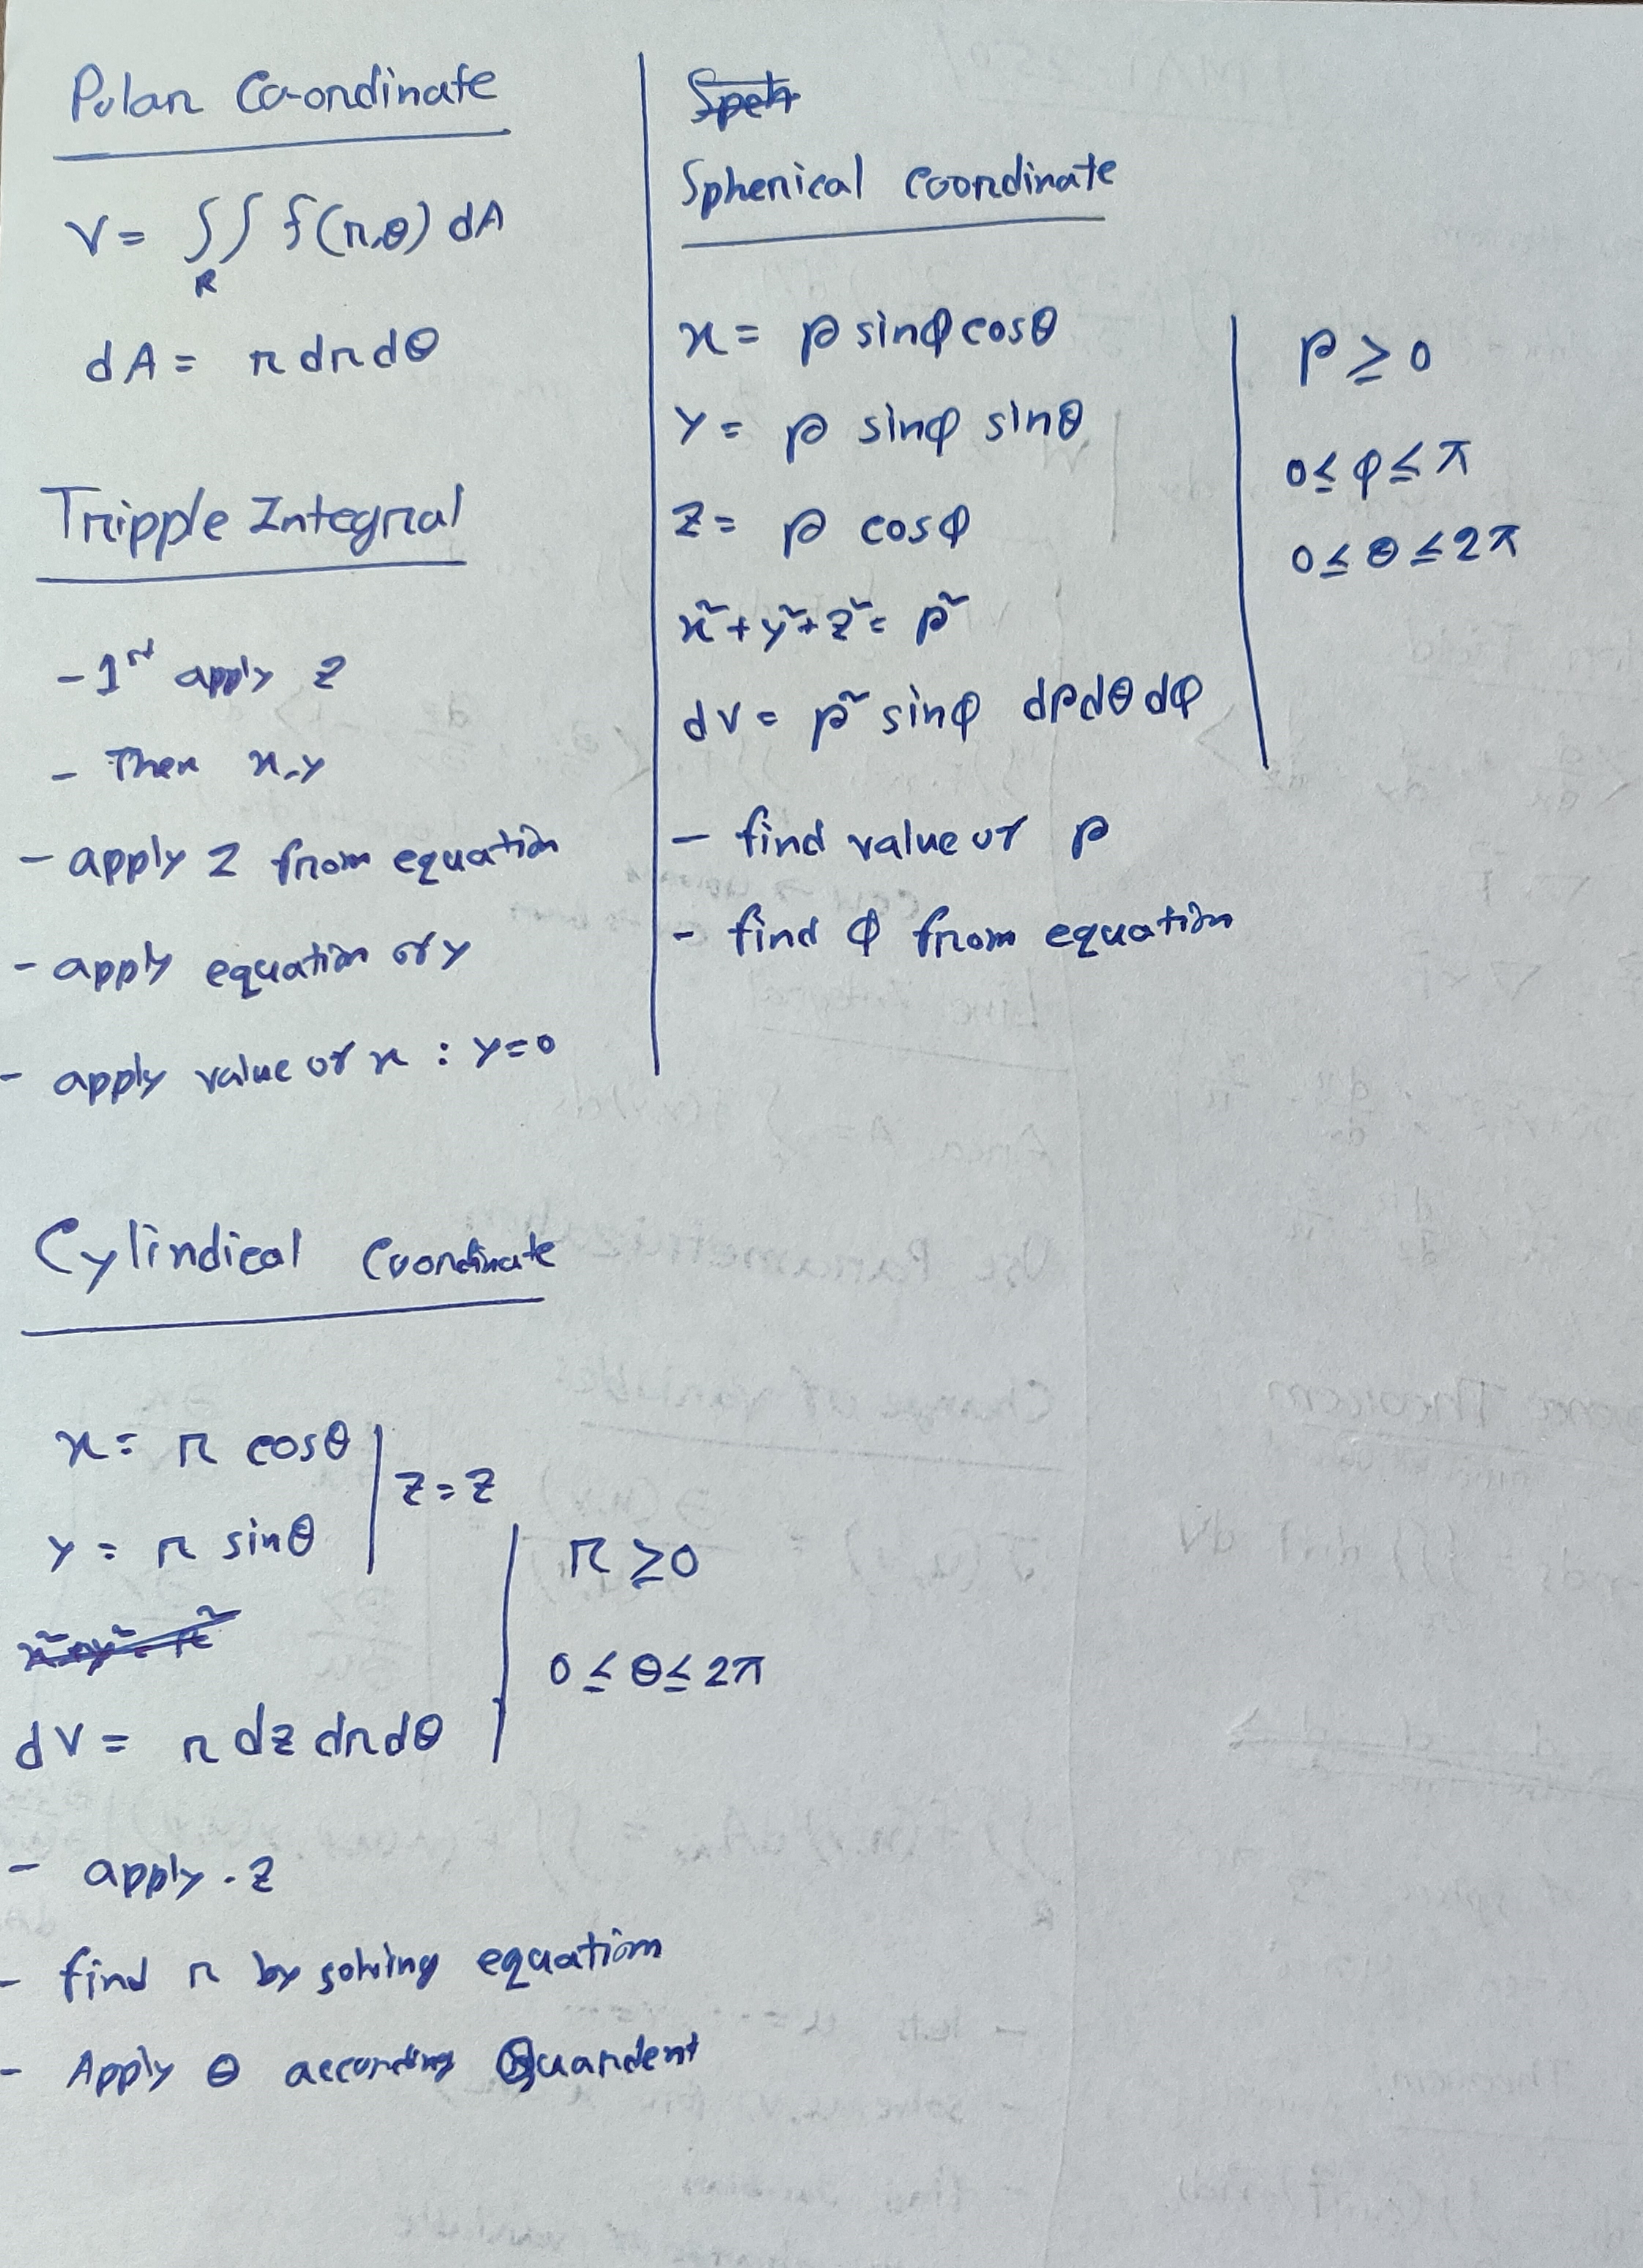 Polar Co-ordinate
V = ∬_R f(r,θ) dA
dA = r dr dθ
Tripple Integral
- 1st apply z
- Then x,y
- apply z from equation
- apply equation of y
- apply value of x : y=0
Cylindical Coordinate
x = r cosθ
y = r sinθ
z = z
dV = r dz dr dθ
r ≥ 0
0 ≤ θ ≤ 2π
- apply z
- find r by solving equation
- Apply θ according Quardent
Spherical coordinate
x = ρ sinφ cosθ
y = ρ sinφ sinθ
z = ρ cosφ
x² + y² + z² = ρ²
dV = ρ² sinφ dρ dθ dφ
ρ ≥ 0
0 ≤ φ ≤ π
0 ≤ θ ≤ 2π
- find value of ρ
- find φ from equation